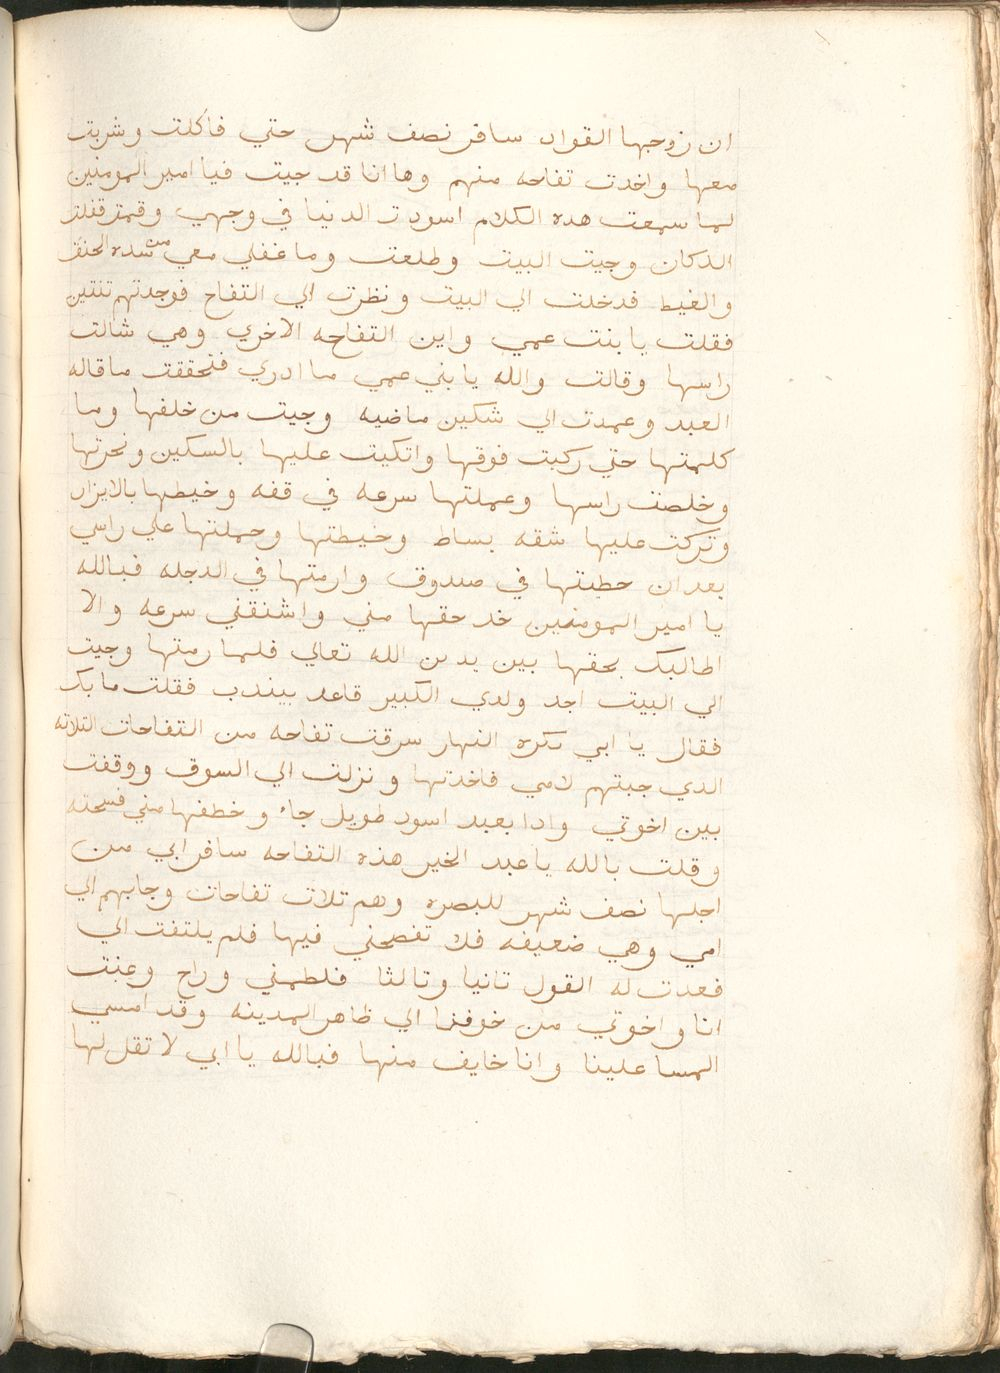 ان زوجها القواد سافر نصف شهر حتي فاكلت وشربت
معها واخدت تفاحه منهم وها انا قد جيت فيا امير المومنين
لما سمعت هده الكلام اسودت الدنيا في وجهي وقمت قفلت
الدكان وجيت البيت وطلعت وما عقلي معي من شده الحنق
والغيط فدخلت الي البيت ونظرت الي التفاح فوجدتهم تنتين
فقلت يا بنت عمي واين التفاحه الاخري وهي شالت
راسها وقالت والله يا بني عمي ما ادري فتحققت ما قاله
العبد وعمدت الي شكين ماضيه وجيت من خلفها وما
كلمتها حتي ركبت فوقها واتكيت عليها بالسكين ونحرتها
وخلصت راسها وعملتها سرعه في قفه وخيطها بالايزار
وتركت عليها شقه بساط وخيطتها وحملتها علي راسي
بعد ان حطيتها في صندوق وارمتها في الدجله فبالله
يا امير المومنين خد حقها مني واشنقني سرعه والا
اطالبك بحقها بين يدين الله تعالي فلما رمتها وجيت
الي البيت اجد ولدي الكبير قاعد بيندب فقلت ما بك
فقال يا ابي بكره النهار سرقت تفاحه من التفاحات التلاته
الدي جبتهم لامي فاخدتها ونزلت الي السوق ووقفت
بين اخوتي وادا بعبد اسود طويل جاء وخطفها مني فسحته
وقلت بالله يا عبد الخير هذه التفاحه سافر ابي من
اجلها نصف شهر للبصره وهم تلات تفاحات وجابهم الي
امي وهي ضعيفه فلا تفصحني فيها فلم يلتفت الي
فعدت له القول تانيا وتالثا فلطمني وراح وعبت
انا واخوتي من خوفنا الي ظاهر المدينه وقد امسي
المسا علينا وانا خايف منها فبالله يا ابي لا تقل لها